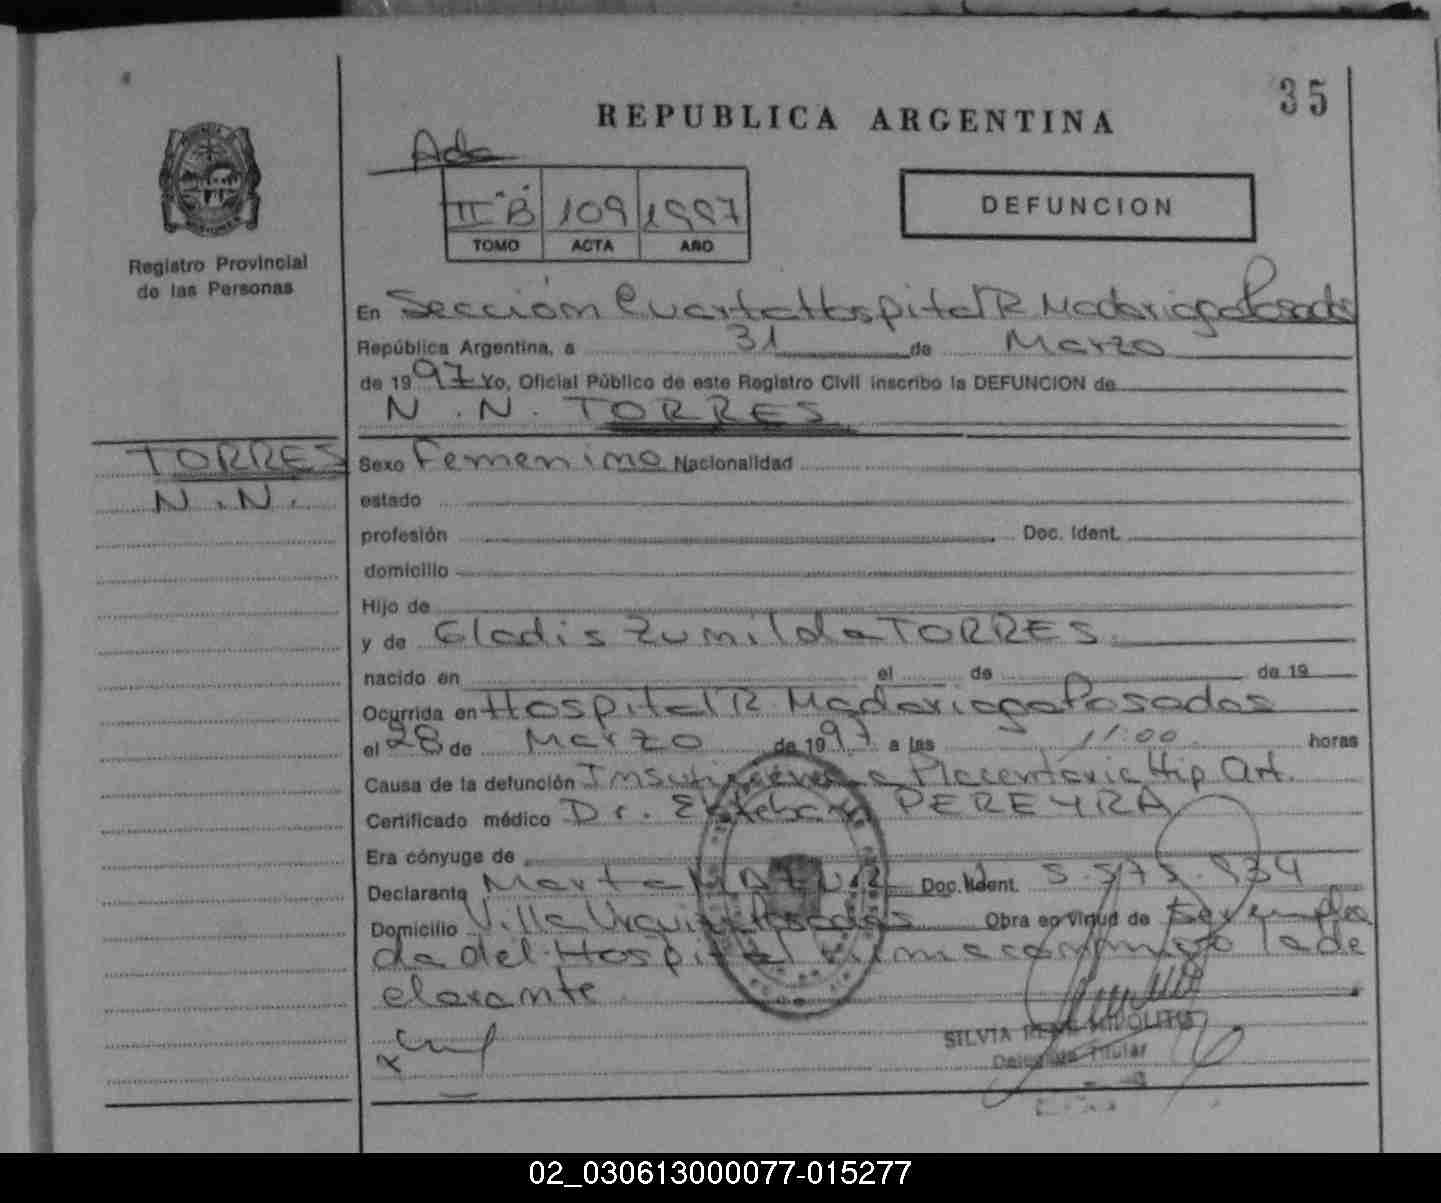 35
REPUBLICA ARGENTINA
Ada
II "B" 109 1997
TOMO ACTA AÑO
DEFUNCION
Registro Provincial
de las Personas
En Sección Cuarta Hospital R. Madariaga Posadas
República Argentina, a 31 de Marzo
de 1997 Yo, Oficial Público de este Registro Civil inscribo la DEFUNCION de
N. N. TORRES
TORRES
N. N.
Sexo Femenino Nacionalidad
estado
profesión Doc. Ident.
domicilio
Hijo de
y de Gladis Zunilda TORRES
nacido en el de de 19
Ocurrida en Hospital R. Madariaga Posadas
el 28 de Marzo de 1997 a las 11:00 horas
Causa de la defunción Insuficiencia Placentaria Hip Art.
Certificado médico Dr. Esteban PEREYRA
Era cónyuge de
Declarante Marta Doc. Ident.
Domicilio Villa Urquiza Posadas Obra en virtud de Ser emplea
da del Hospital Firma conmigo la de
clarante
SILVIA HIPOLITO
Delegada Titular
02_030613000077-015277